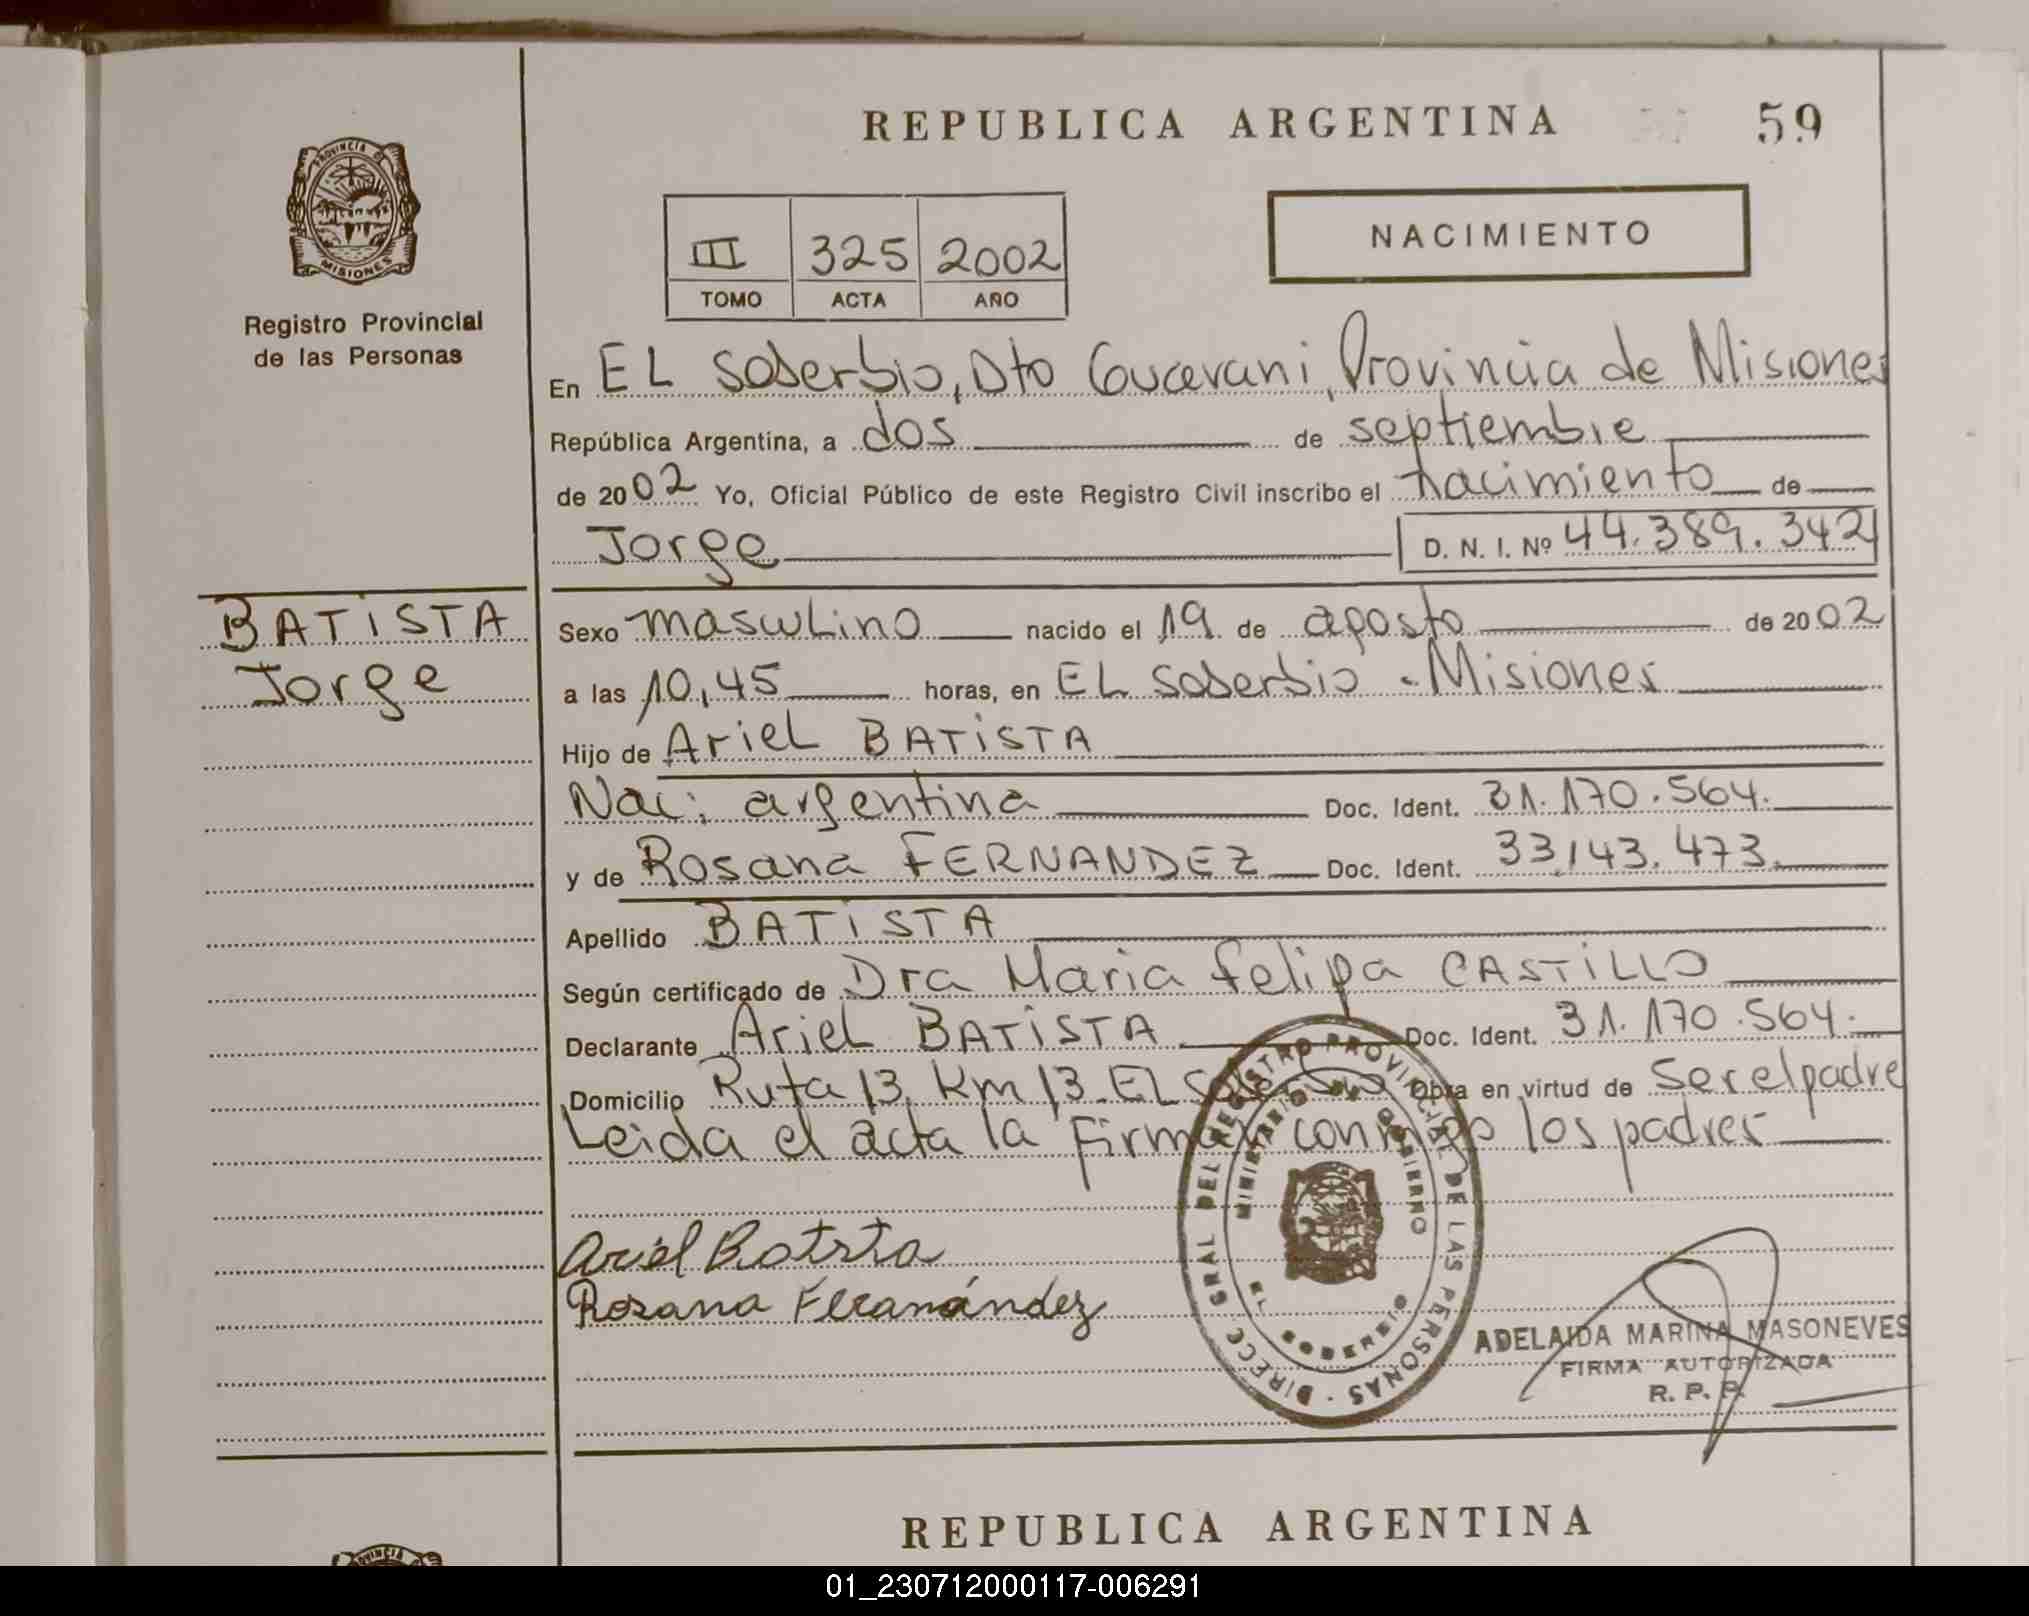 REPUBLICA ARGENTINA
59
PROVINCIA DE
MISIONES
Registro Provincial
de las Personas
III 325 2002
TOMO ACTA AÑO
NACIMIENTO
En EL Soberbio, Dto Guaraní, Provincia de Misiones
República Argentina, a dos de septiembre
de 2002 Yo, Oficial Público de este Registro Civil inscribo el nacimiento de
Jorge D. N. I. Nº 44.389.342
BATISTA
Jorge
Sexo masculino nacido el 19 de agosto de 2002
a las 10,45 horas, en EL Soberbio - Misiones
Hijo de Ariel BATISTA
Nac: argentina Doc. Ident. 31.170.564.
y de Rosana FERNANDEZ Doc. Ident. 33,143.473.
Apellido BATISTA
Según certificado de Dra Maria Felipa CASTILLO
Declarante Ariel BATISTA Doc. Ident. 31.170.564.
Domicilio Ruta 13, Km 13. EL Soberbio Obra en virtud de Ser el padre
Leida el acta la firman conmigo los padres
Ariel Batista
Rosana Fernández
DIRECC GRAL DEL REGISTRO PROVINCIAL DE LAS PERSONAS
MINISTERIO DE GOBIERNO
EL SOBERBIO
ADELAIDA MARINA MASONEVES
FIRMA AUTORIZADA
R. P. P.
REPUBLICA ARGENTINA
01_230712000117-006291